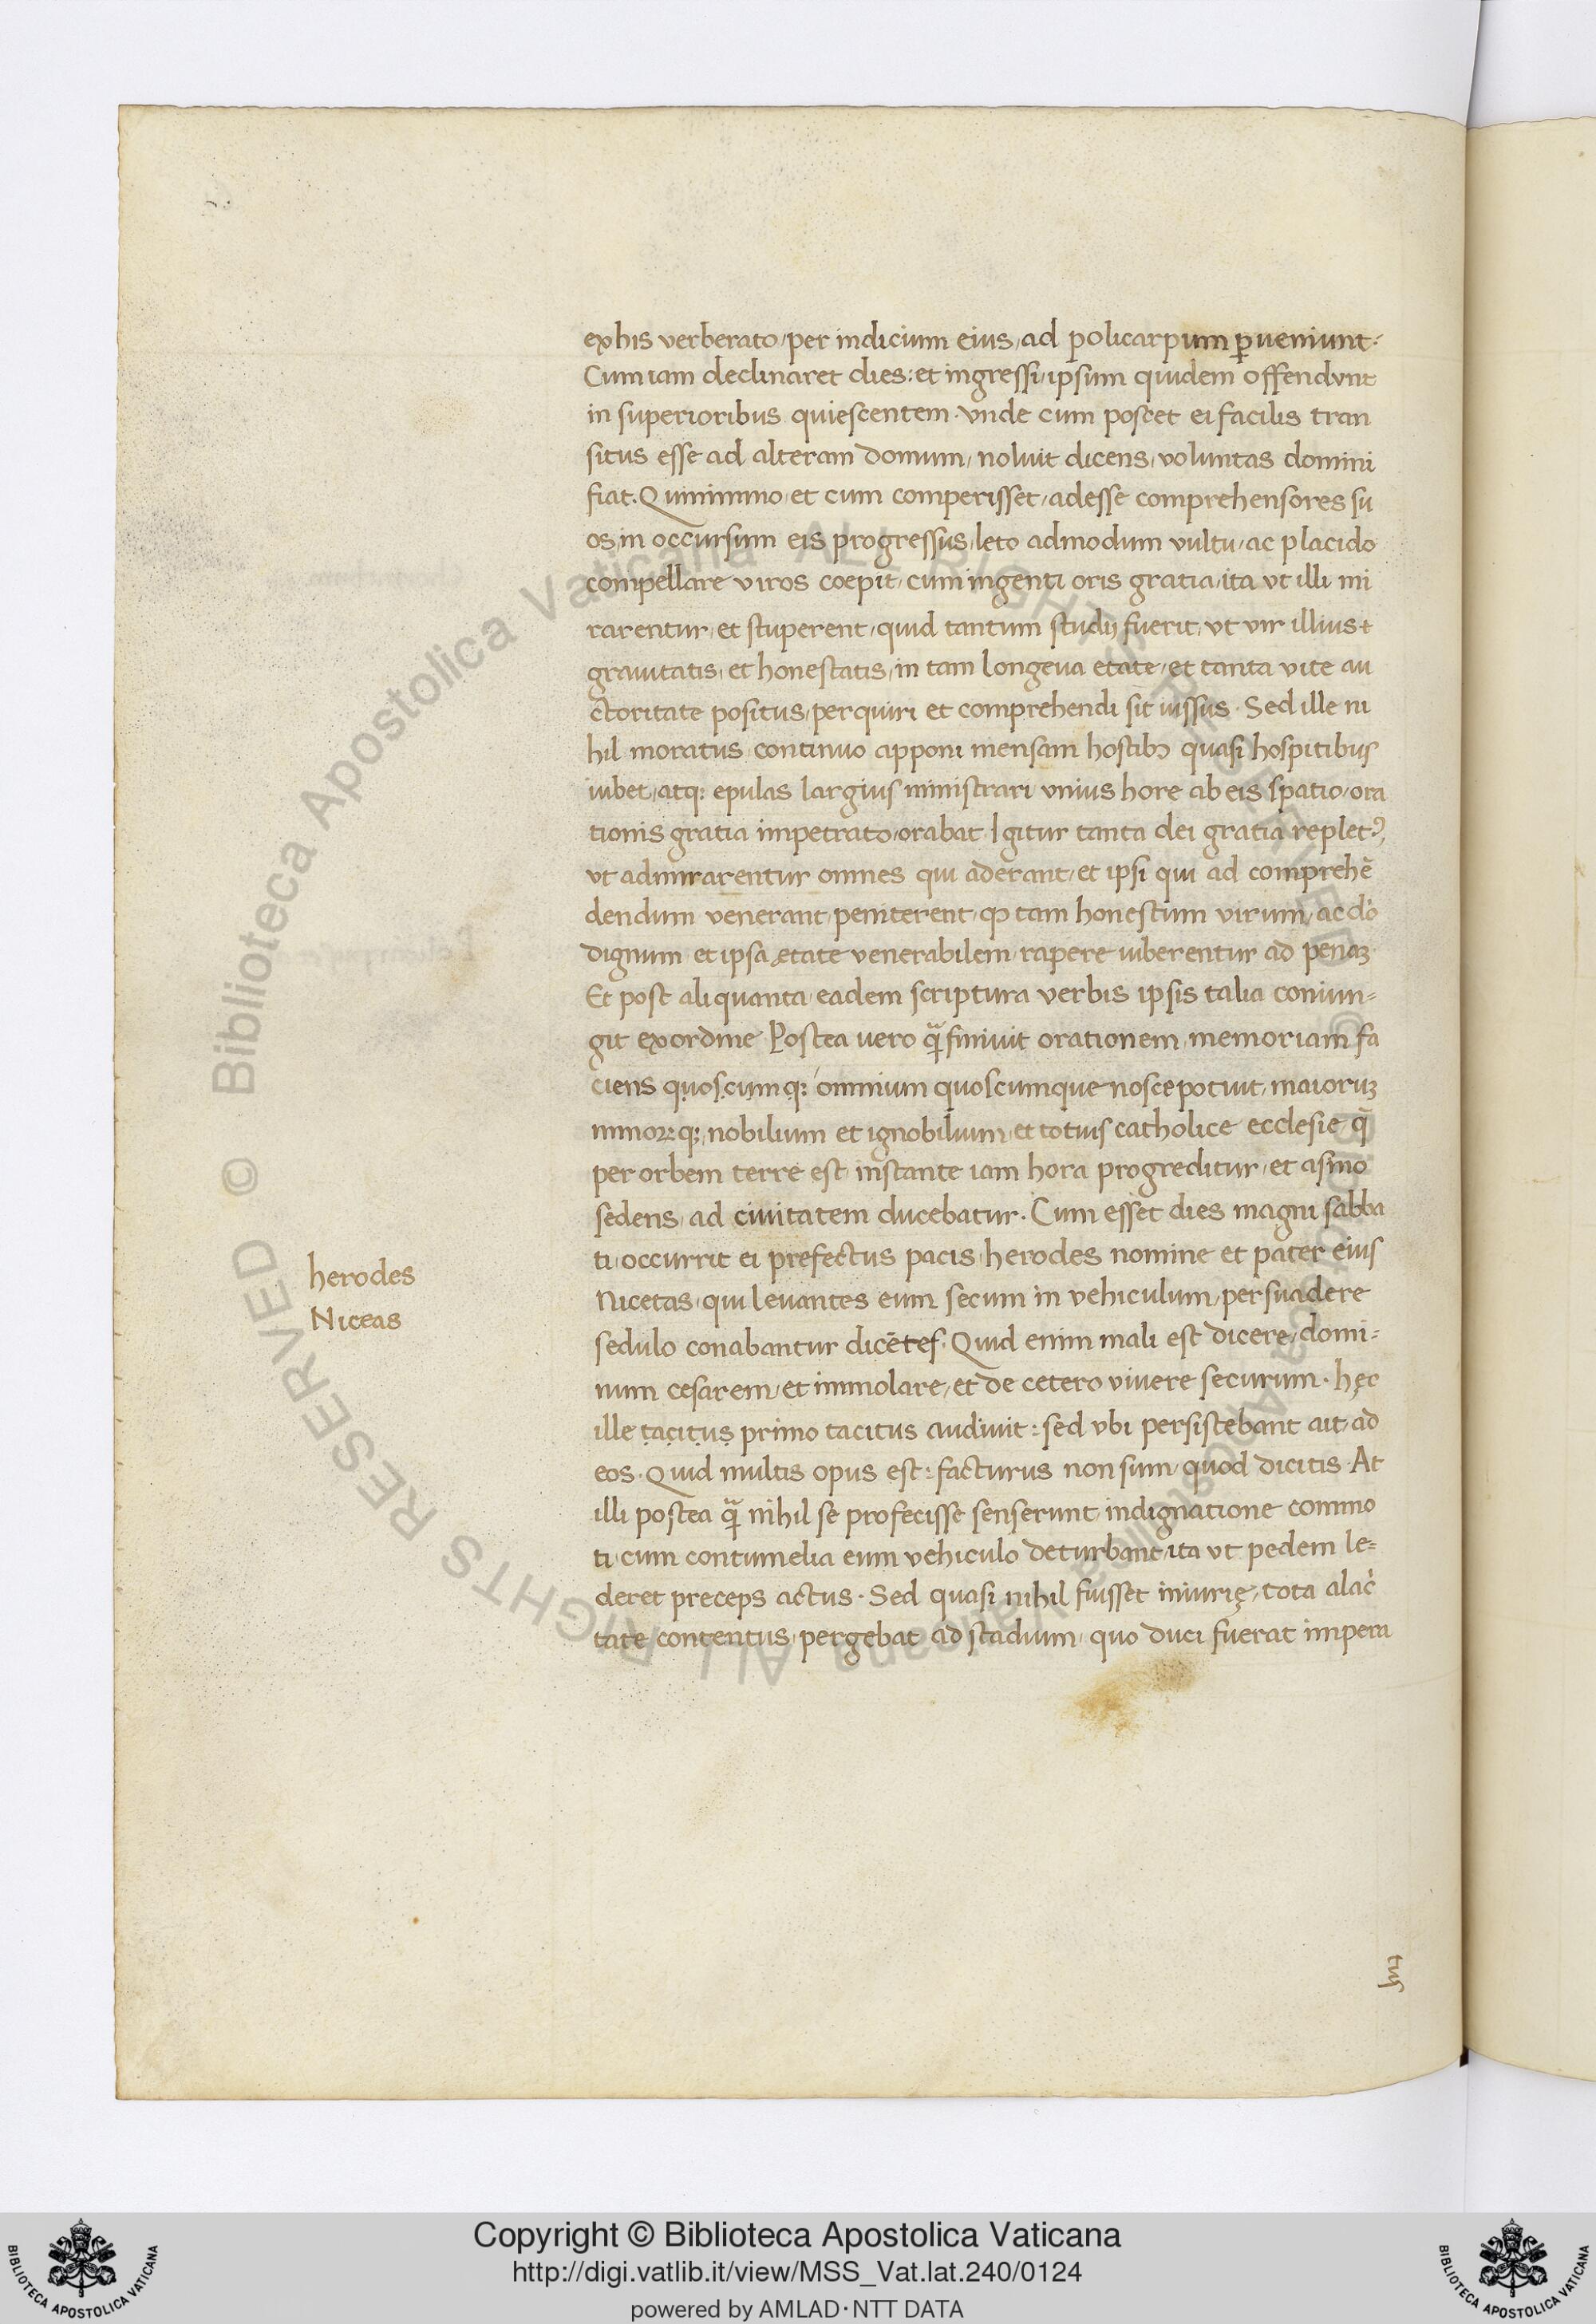 ex his verberato, per indicium eius, ad policarpum ꝑueniunt.
Cum iam declinaret dies: et ingressi, ipsum quidem offendunt
in superioribus quiescentem. vnde cum poscet ei facilis tran
situs esse ad alteram domum, noluit dicens, voluntas domini
fiat. Quinimmo et cum comperisset, adesse comprehensores su
os, in occursum eis progressus, leto admodum vultu, ac placido
compellare viros coepit, cum ingenti oris gratia, ita vt illi mi
rarentur, et stuperent, quid tantum studij fuerit, vt vir illius t
grauitatis, et honestatis, in tam longeua etate, et tanta vite au
ctoritate positus, perquiri et comprehendi sit iussus. Sed ille ni
hil moratus continuo apponi mensam hostibꝫ quasi hospitibus
iubet, atq; epulas largius ministrari vnius hore ab eis spatio, ora
tionis gratia impetrato, orabat Igitur tanta dei gratia replet᾽,
vt admirarentur omnes qui aderant, et ipsi qui ad comprehē
dendum venerant, peniterent, ꝙ tam honestum virum, ac dō
dignum et ipsa ętate venerabilem, rapere iuberentur ad penaꝫ.
Et post aliquanta, eadem scriptura verbis ipsis talia coniun-
git ex ordine Postea uero q̄ finiuit orationem, memoriam fa
ciens quoscumq; omnium quoscumque nosce potuit, maioruꝫ
minorꝫq;, nobilium et ignobilium, et totius catholice ecclesie q̄
per orbem terre est, instante iam hora progreditur, et asino
sedens, ad ciuitatem ducebatur. Cum esset dies magni sabba
ti, occurrit ei prefectus pacis, herodes nomine et pater eius
Nicetas, qui leuantes eum secum in vehiculum, persuadere
sedulo conabantur dicētes. Quid enim mali est dicere, domi-
num cesarem, et immolare, et de cetero viuere securum. hęc
ille tacitus primo tacitus audiuit: sed vbi persistebant ait, ad
eos. Quid multis opus est: facturus non sum, quod dicitis. At
illi postea q̄ nihil se profecisse senserunt, indignatione commo
ti, cum contumelia eum vehiculo deturbant, ita vt pedem le-
deret preceps actus. Sed quasi nihil fuisset iniurię, tota alac̓
tate contentus, pergebat ad stadium, quo duci fuerat impera
herodes
Niceas
tus
Copyright © Biblioteca Apostolica Vaticana
http://digi.vatlib.it/view/MSS_Vat.lat.240/0124
powered by AMLAD·NTT DATA
BIBLIOTECA APOSTOLICA VATICANA
BIBLIOTECA APOSTOLICA VATICANA
© Biblioteca Apostolica Vaticana ALL RIGHTS RESERVED © Biblioteca Apostolica Vaticana ALL RIGHTS RESERVED